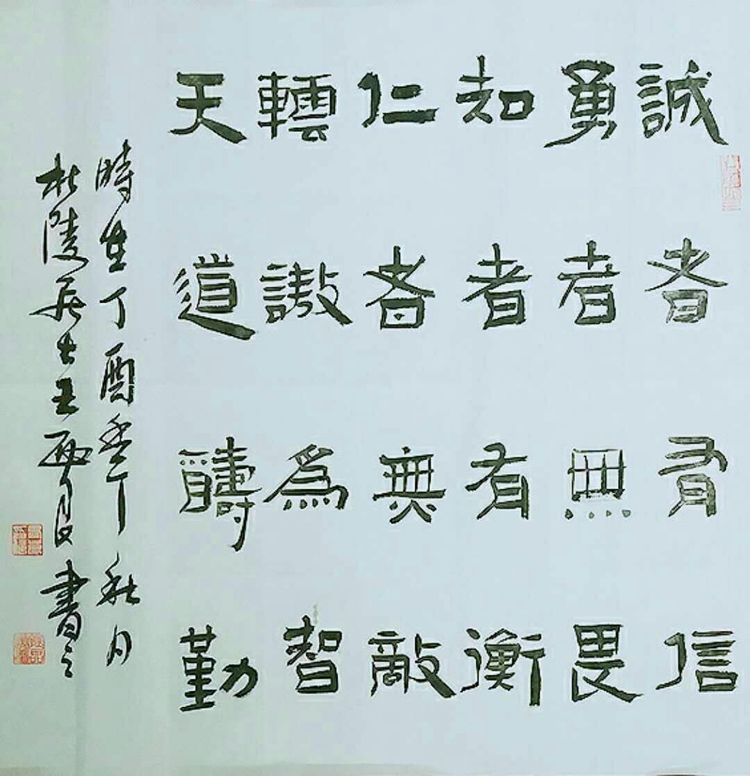 誠者有信
勇者無畏
知者有衡
仁者無敵
為智
天道醻勤
時在丁酉年秋月
杜陵居士王書之